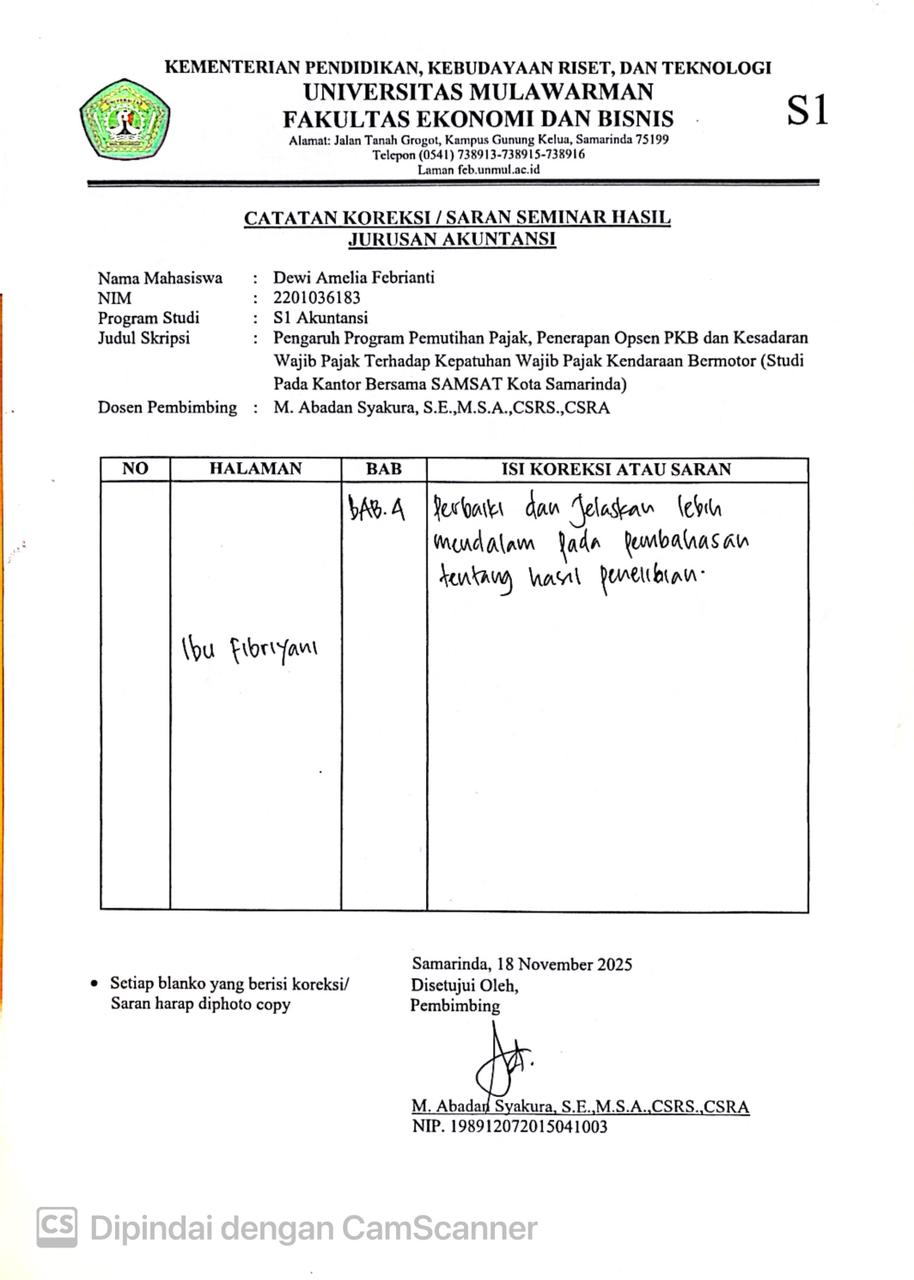 KEMENTERIAN PENDIDIKAN, KEBUDAYAAN RISET, DAN TEKNOLOGI
UNIVERSITAS MULAWARMAN
FAKULTAS EKONOMI DAN BISNIS
S1
Alamat: Jalan Tanah Grogot, Kampus Gunung Kelua, Samarinda 75199
Telepon (0541) 738913-738915-738916
Laman feb.unmul.ac.id
CATATAN KOREKSI / SARAN SEMINAR HASIL
JURUSAN AKUNTANSI
Nama Mahasiswa : Dewi Amelia Febrianti
NIM : 2201036183
Program Studi : S1 Akuntansi
Judul Skripsi : Pengaruh Program Pemutihan Pajak, Penerapan Opsen PKB dan Kesadaran
Wajib Pajak Terhadap Kepatuhan Wajib Pajak Kendaraan Bermotor (Studi
Pada Kantor Bersama SAMSAT Kota Samarinda)
Dosen Pembimbing : M. Abadan Syakura, S.E.,M.S.A.,CSRS.,CSRA
NO HALAMAN BAB ISI KOREKSI ATAU SARAN
BAB. 4 Perbaiki dan Jelaskan lebih
mendalam pada pembahasan
tentang hasil penelitian.
Ibu Fibriyani
Samarinda, 18 November 2025
• Setiap blanko yang berisi koreksi/
Saran harap diphoto copy
Disetujui Oleh,
Pembimbing
M. Abadan Syakura, S.E.,M.S.A.,CSRS.,CSRA
NIP. 198912072015041003
CS Dipindai dengan CamScanner